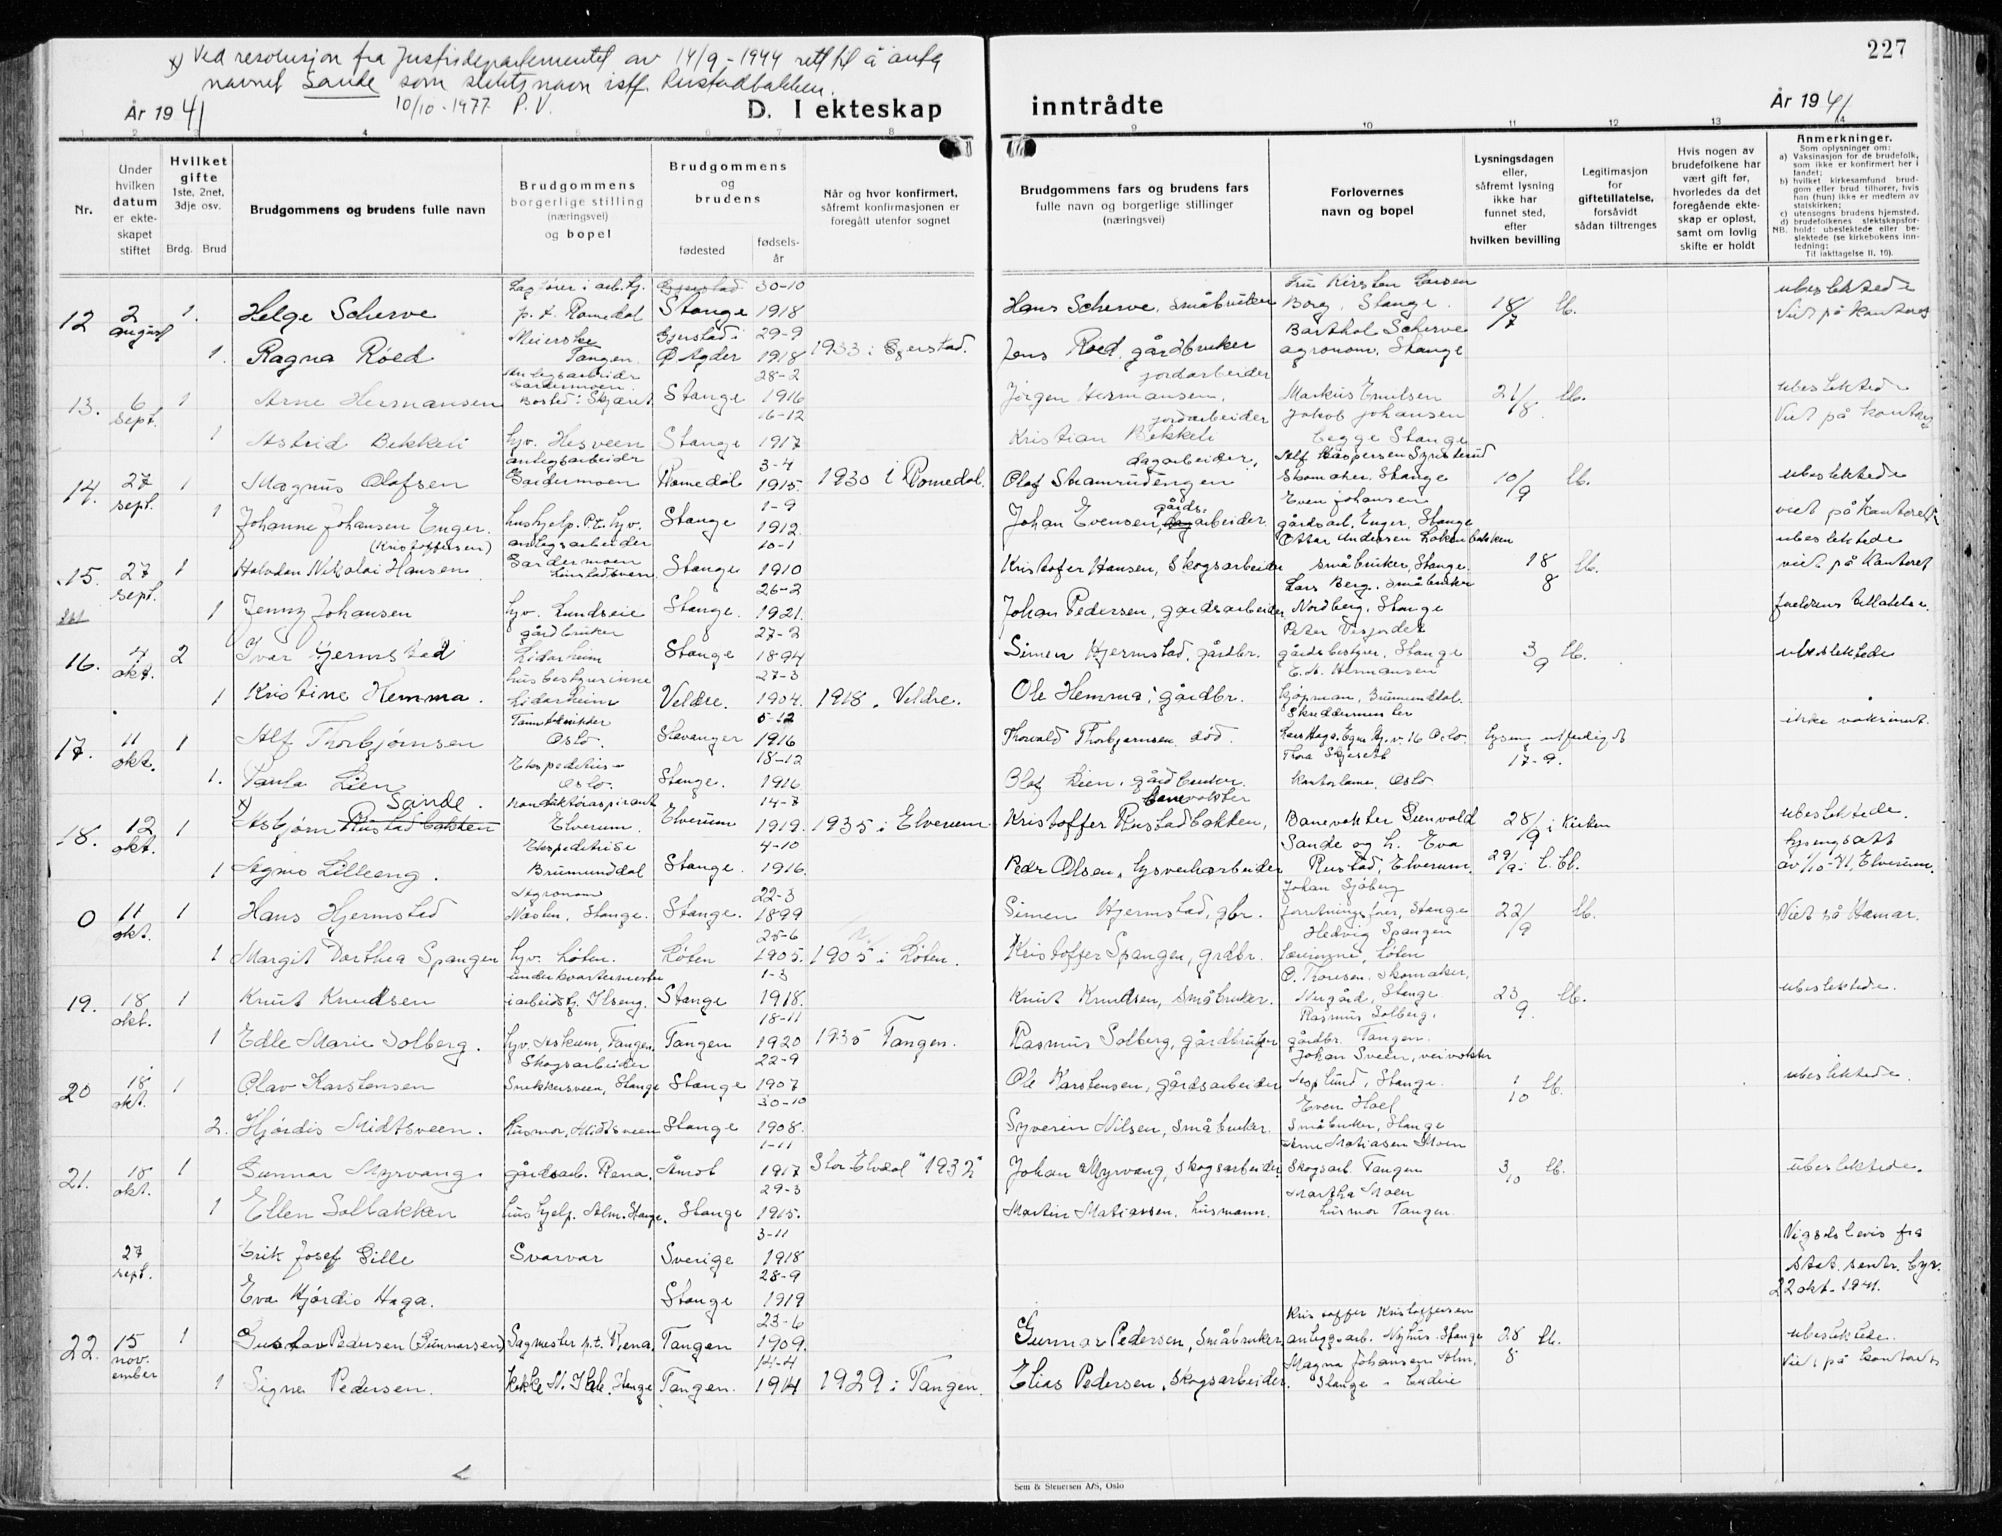 227
x) Ved resolusjon fra Justisdepartementet av 14/9-1944 rett til å anta
navnet Sande som slektsnavn istf. Rustadbakken.
10/10-1977 P. V.
År 1941
D. I ekteskap inntrådte
År 1941
1 2 4 5 6 7 8 9 10 11 12 13 14
Nr.
Under hvilken datum er ekteskapet stiftet
Hvilket gifte
1ste, 2net, 3dje osv.
Brdg. Brud
Brudgommens og brudens fulle navn
Brudgommens borgerlige stilling (næringsvei) og bopel
Brudgommens og brudens
fødested
fødselsår
Når og hvor konfirmert, såfremt konfirmasjonen er foregått utenfor sognet
Brudgommens fars og brudens fars fulle navn og borgerlige stillinger (næringsvei)
Forlovernes navn og bopel
Lysningsdagen eller, såfremt lysning ikke har funnet sted, efter hvilken bevilling
Legitimasjon for giftetillatelse, forsåvidt sådan tiltrenges
Hvis nogen av brudefolkene har vært gift før, hvorledes da det foregående ekteskap er opløst, samt om lovlig skifte er holdt
Anmerkninger.
Som oplysninger om:
a) Vaksinasjon for de brudefolk, som ikke er konfirmert her i landet;
b) hvilket kirkesamfund brudgom eller brud tilhører, hvis han (hun) ikke er medlem av statskirken;
c) utensogns brudens hjemsted.
d) brudefolkenes slektskapsforhold: ubeslektede eller beslektede (se kirkebokens innledning: Til iakttagelse II. 10).
NB.
12 2 august 1. Helge Scherve p. t. Romedal Stange 30-10 1918 Hans Scherve, småbruker Fru Kirsten Larsen Borg, Stange. 18/7 lb. ubeslektede Viet på kontoret
1. Ragna Röed Meierske Tangen Gjerstad i Ø Agder 29-9 1918 1933 i Gjerstad. Jens Röed, gårdbruker Barthol Scherve agronom, Stange
13. 6 sept. 1 Arne Hermansen Gardermoen. Bosted: Skjæret Stange 28-2 1916 Jörgen Hermansen, jordarbeider Markus Emilsen 21/8. lb. ubeslektede Viet på kontoret
1 Astrid Bekkeli hjv. Hesveen Stange 16-12 1917 Kristian Bekkeli jordarbeider Jakob Johansen begge Stange
14. 27 sept. 1 Magnus Olafsen anlegsarbeider Gardermoen Romedal 3-4 1915. 1930 i Romedal. Olaf Stramrudengen dagarbeider, Skomaker, Stange 10/9 lb. ubeslektede viet på kontoret
1 Johanne Johansen Enger. (Kristoffersen) hushjelp. Pt. hjv. Stange 1-9 1912. Johan Evensen, gårdsarbeider. Even Johansen gårdsarb. Enger, Stange
15. 27 sept. 1 Halvdan Nikolai Hansen anlegsarbeider Gardermoen Stange 10-1 1910 Kristofer Hansen, Skogsarbeider Ottar Andersen småbruker, Stange. 18 8 lb. ubeslektede viet på kontoret
1 Jenny Johansen hjv. Lundseie Stange. 26-2 1921. Johan Pedersen, gårdsarbeider Lars Berg. småbruker Nordberg, Stange
16. 4 okt. 2 Ivar Hjermstad gårdbruker Lidarheim Stange 27-2 1894 Simen Hjermstad, gårdbr. gårdsbestyrer, Stange 3 9 lb. ubeslektede
1 Kristine Hemma. husbestyrerinne Lidarheim Veldre. 27-3 1904. 1918. Veldre. Ole Hemma, gårdbr. E. A. Hermansen kjøpman, Brumunddal.
17. 11 okt. 1 Alf Thorbjørnsen Oslo. Stavanger 5-12 1916 Thorvald Thorbjørnsen död. Skreddermester Oslo. Lysning utferdiget 17-9. ikke vaksinert.
1. Paula Lien Ekspeditrise Oslo. Stange. 18-12 1916 Olaf Lien, gårdbruker Thora Skjeseth Kontordame, Oslo
18. 12 okt. 1 x) Asbjörn Rustadbakken Sande. Konduktöraspirant Elverum. Elverum 14-7 1919. 1935 i Elverum Kristoffer Rustadbakken, banevokter Banevokter Sande og h. Eva Rustad, Elverum. 28/9 i Kirken ubeslektede. lysingsatt av 1/10-41, Elverum.
1 Agnes Lilleeng. Ekspeditrise Brumunddal Stange. 4-10 1916. Peder Olsen, 29/9
0 11 okt. 1 Hans Hjermstad Agronom Stange. Stange. 22-3 1899 Simen Hjermstad, gbr. Johan Sjöberg forretningsfører, Stange 22/9 lb. Viet på Hamar.
1 Margit Dorthea Spangen hjv. Löten. Löten 25-6 1905. 1905 i Löten. Kristoffer Spangen, grdbr. Hedvig Spangen Löten
19. 18 okt. 1 Knut Knudsen i arbeidstj. Ilseng. Stange 1-3 1918. Knut Knudsen, småbruker. O. Thoresen. Skomaker, Stange 23 9. lb. ubeslektede.
1 Edle Marie Solberg. hjv. Askum, Tangen. Tangen 18-11 1920 1935 Tangen. Rasmus Solberg, gårdbruker Rasmus Solberg, gårdbr. Tangen.
20 18 okt. 1 Olav Karstensen Skogsarbeider Snekkersveen, Stange Stange 22-9 1907 Ole Karstensen, gårdsarbeider Johan Sveen, veivokter Asplund, Stange. 1 10 lb. ubeslektede.
2. Hjördis Midtsveen. Husmor, Midtsveen Stange 30-10 1908. Syverin Nilsen, småbruker. Even Hoel Småbruker, Stange
21. 18 okt. 1 Gunnar Myrvang. gårdsarb. Rena. Åmot 1-11 1917 Stor-Elvdal "1932" Johan Myrvang, skogsarbeider Arne Matiasen Moen Skogsarb. Tangen 3 10 lb. ubeslektede.
1 Ellen Solbakken hushjelp. Alm. Stange. Stange 29-3 1915. Martin Matiassen, husmann. Martha Moen husmor Tangen
27 sept. Erik Josef Gille Svarvar Sverige 3-11 1918 Vigselsbevis fra stat. sentr. byr. 22 okt. 1941.
Eva Hjördis Haga. Stange 28-9 1919
22. 15 november 1 Gustav Pedersen (Gunnarsen) Sagmester p.t. Rena. Tangen 23-6 1909. Gunnar Pedersen, Småbruker Kristoffer Kristoffersen anleggsarb. Nyhus. Stange 28 8 lb. ubeslektede. Viet på kontoret
1 Signe Pedersen. Stange Tangen. 14-4 1914 1929 i Tangen. Elias Pedersen, Skogsarbeider. Magna Johansen Alm, Stange
Sem & Stenersen A/S, Oslo